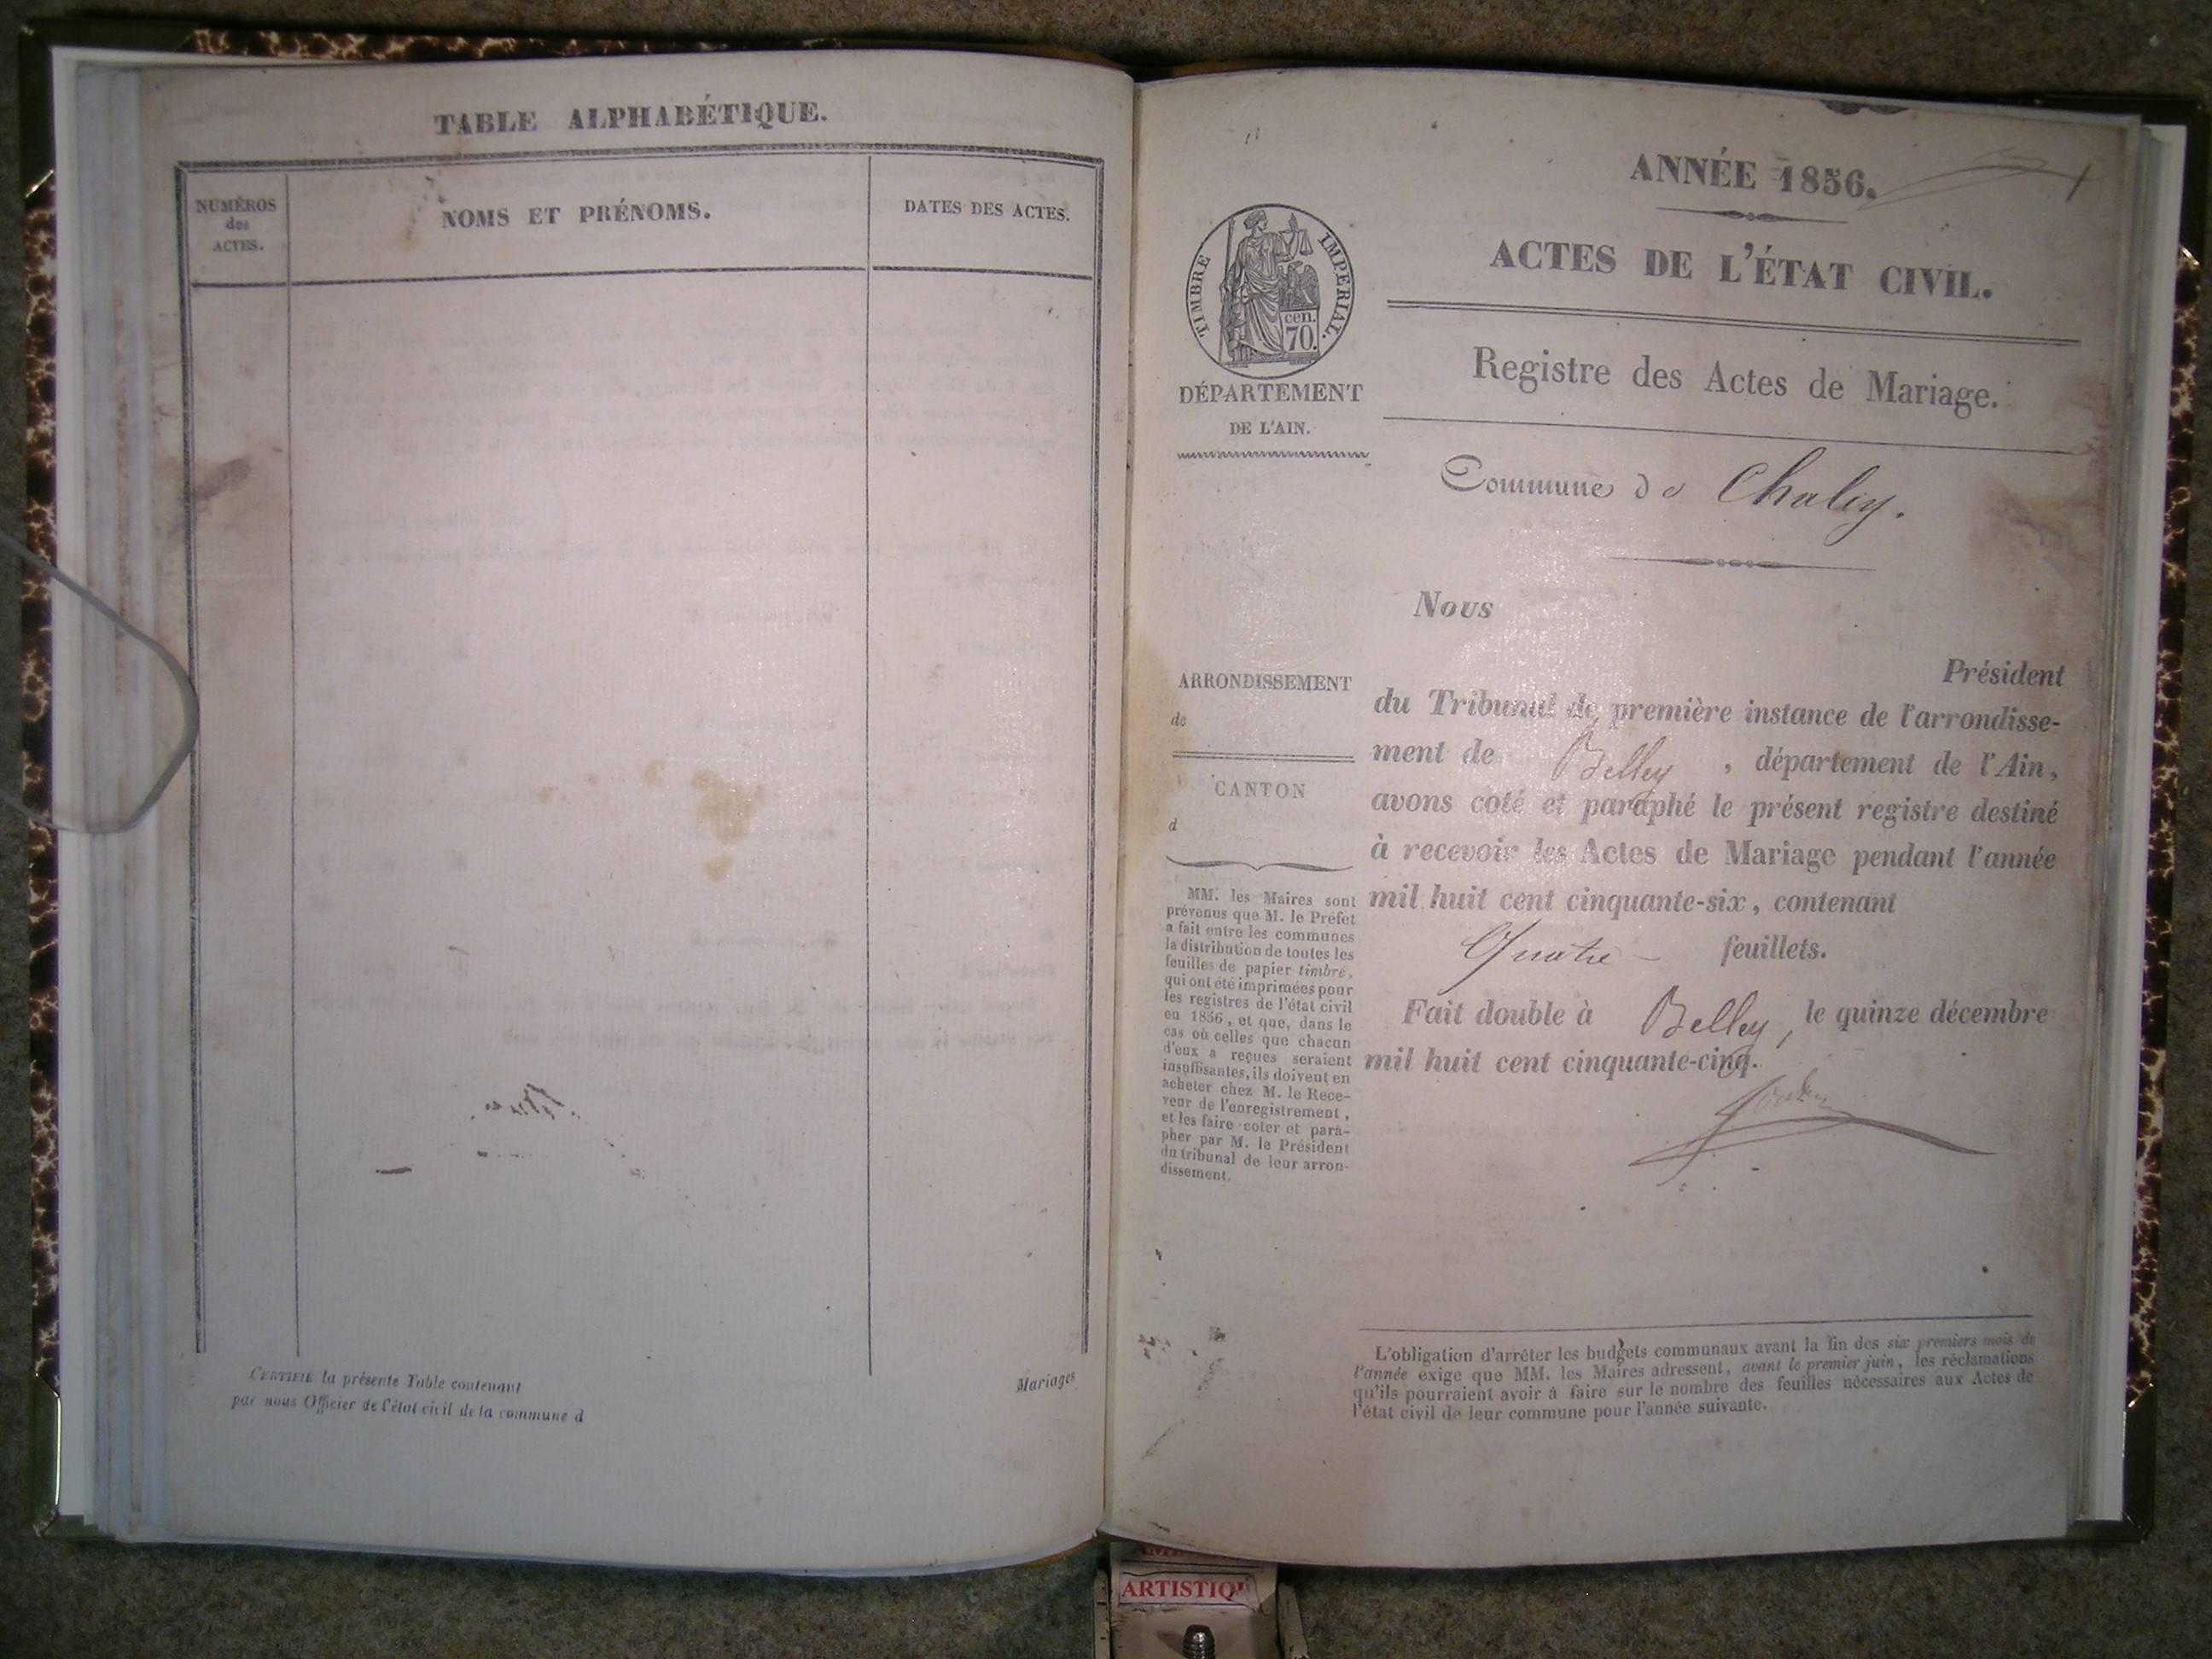 TABLE ALPHABÉTIQUE.
NUMÉROS
des
ACTES.
NOMS ET PRÉNOMS.
DATES DES ACTES.
CERTIFIÉ la présente Table contenant
par nous Officier de l'état civil de la commune d
Mariages
1
ANNÉE 1856.
ACTES DE L'ÉTAT CIVIL.
TIMBRE IMPERIAL.
cen.
70.
DÉPARTEMENT
DE L'AIN.
Registre des Actes de Mariage.
Commune de Chaley.
Nous
Président
du Tribunal de première instance de l'arrondisse-
ment de Belley, département de l'Ain,
avons coté et paraphé le présent registre destiné
à recevoir les Actes de Mariage pendant l'année
mil huit cent cinquante-six, contenant
Quatre - feuillets.
Fait double à Belley, le quinze décembre
mil huit cent cinquante-cinq.
ARRONDISSEMENT
de
CANTON
d
MM. les Maires sont
prévenus que M. le Préfet
a fait entre les communes
la distribution de toutes les
feuilles de papier timbré,
qui ont été imprimées pour
les registres de l'état civil
en 1856, et que, dans le
cas où celles que chacun
d'eux a reçues seraient
insuffisantes, ils doivent en
acheter chez M. le Rece-
veur de l'enregistrement,
et les faire coter et para-
pher par M. le Président
du tribunal de leur arron-
dissement.
L'obligation d'arrêter les budgets communaux avant la fin des six premiers mois de
l'année exige que MM. les Maires adressent, avant le premier juin, les réclamations
qu'ils pourraient avoir à faire sur le nombre des feuilles nécessaires aux Actes de
l'état civil de leur commune pour l'année suivante.
ARTISTIQ